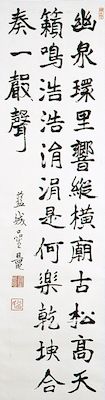 幽泉環里響縱橫廟古松高天
籟鳴浩浩涓涓是何樂乾坤合
奏一殸聲
藍城